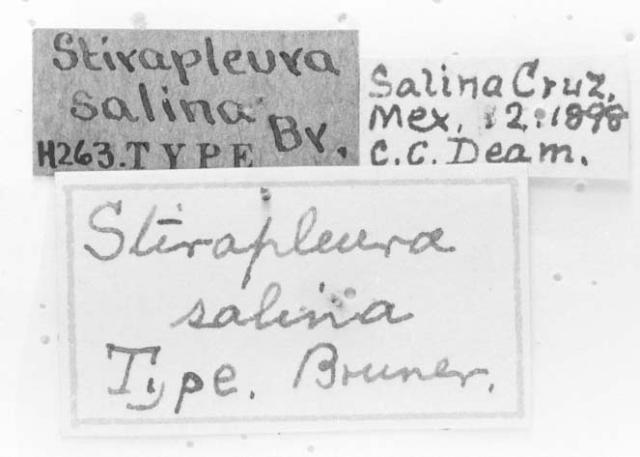 Stirapleura
salina Br.
H263. TYPE
Salina Cruz,
Mex, 12:1898
C.C. Deam.
Stirapleura
salina
Type. Bruner.